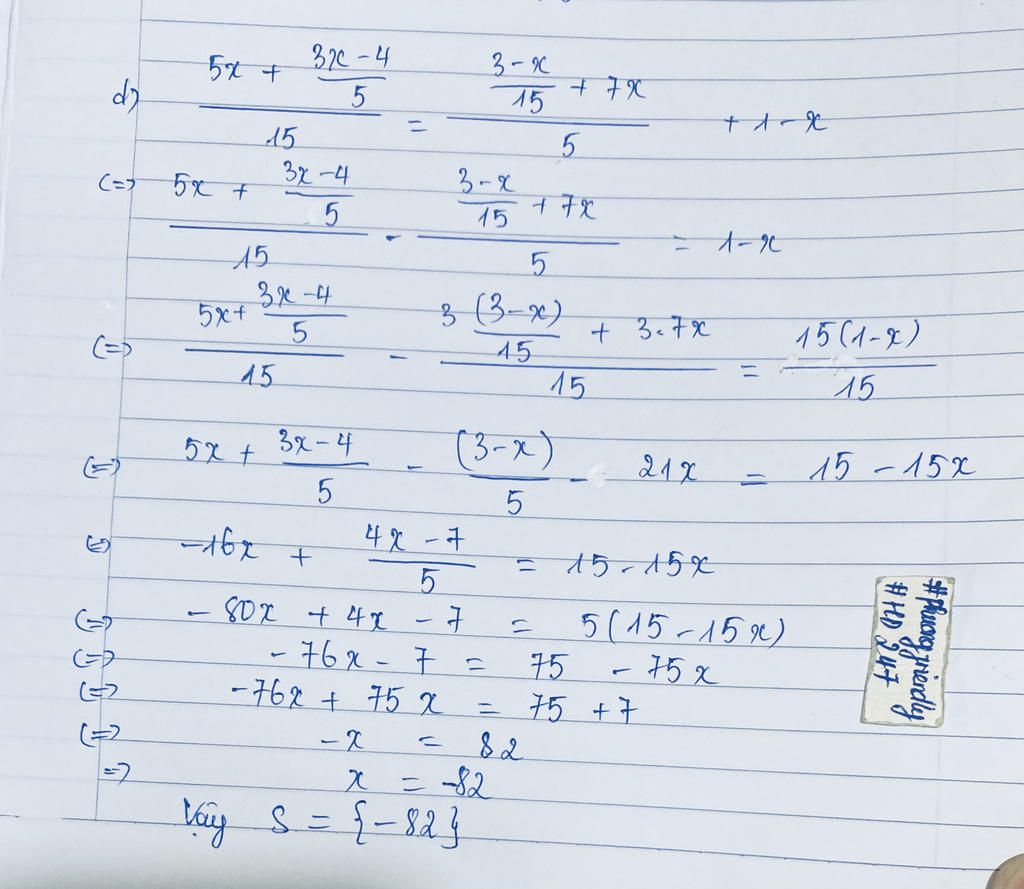 d) (5x + (3x-4)/5)/15 = ((3-x)/15 + 7x)/5 + 1-x
<=> (5x + (3x-4)/5)/15 - ((3-x)/15 + 7x)/5 = 1-x
<=> (5x + (3x-4)/5)/15 - (3(3-x)/15 + 3.7x)/15 = 15(1-x)/15
<=> 5x + (3x-4)/5 - (3-x)/5 - 21x = 15 - 15x
<=> -16x + (4x-7)/5 = 15 - 15x
<=> -80x + 4x - 7 = 5(15-15x)
<=> -76x - 7 = 75 - 75x
<=> -76x + 75x = 75 + 7
<=> -x = 82
=> x = -82
Vậy S = {-82}
# HD 247